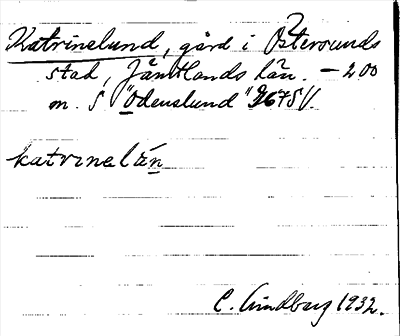 Katrinelund, gård i Östersunds
stad, Jämtlands län. – 200
m. S "Odenslund" 2675 V.
katrinelän
C. Lindberg 1932.